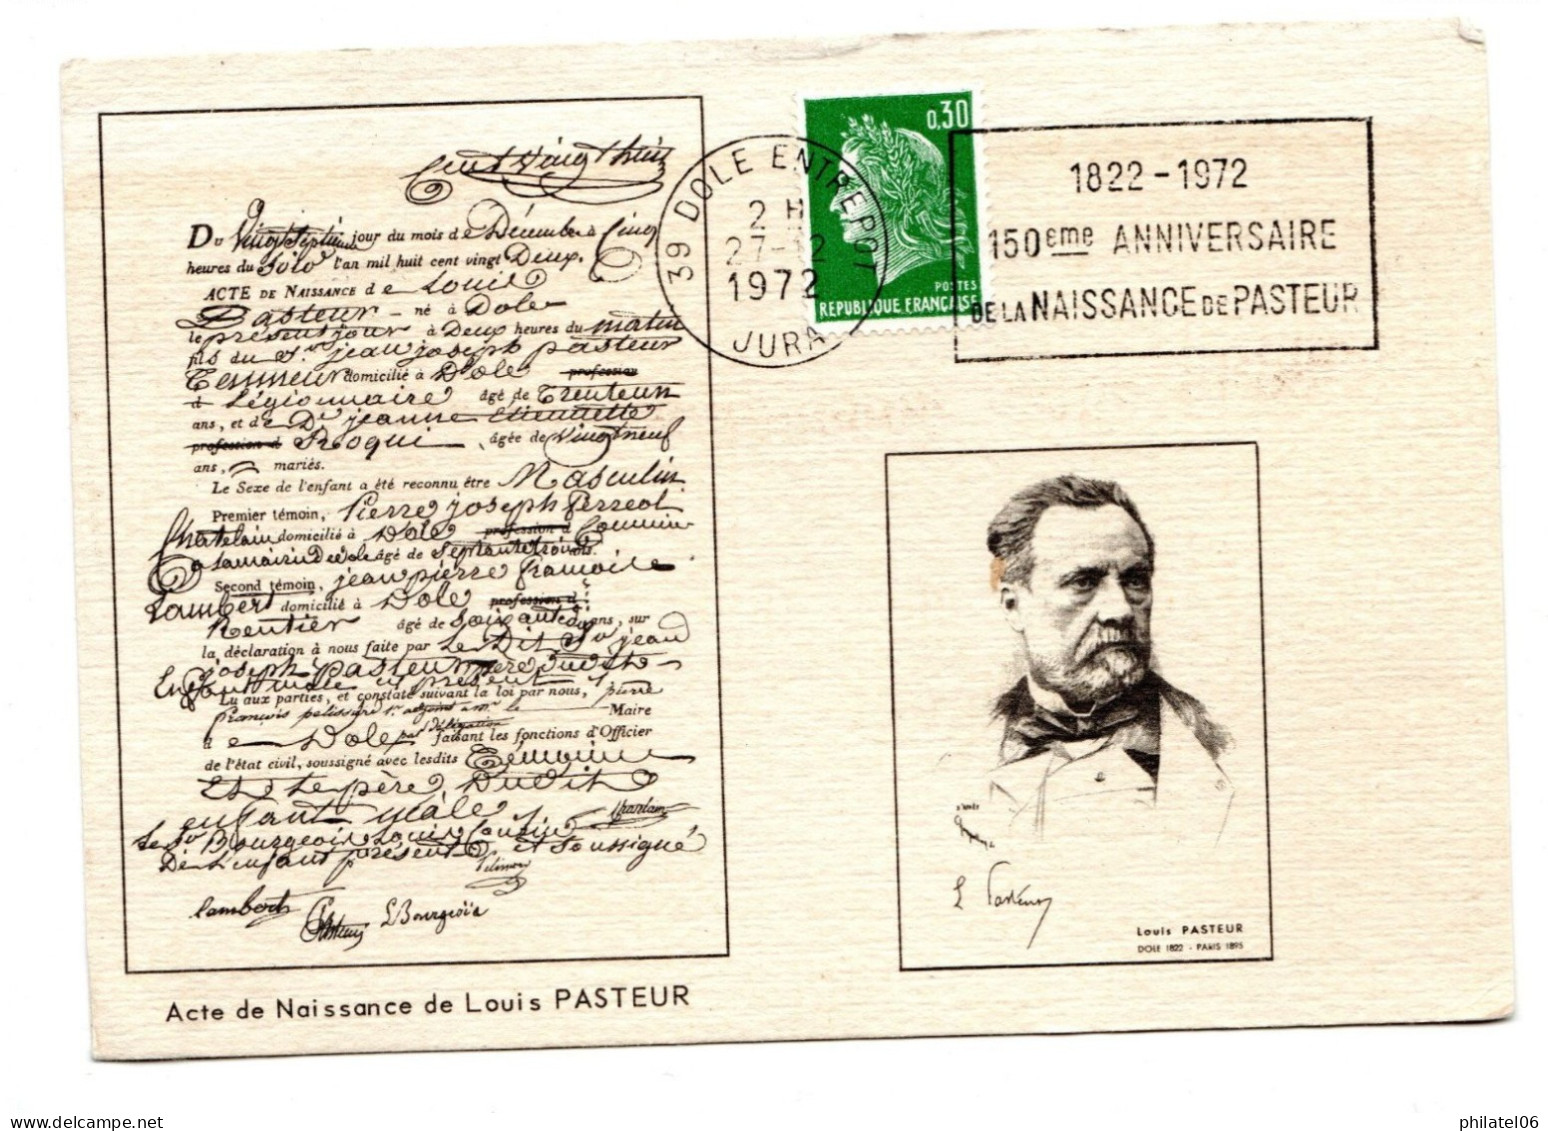 Cent Vingt huit
Du Vingt Septieme jour du mois de Décembre à Cinq
heures du Soir l'an mil huit cent vingt Deux.
ACTE DE NAISSANCE de Louis
Pasteur né à Dole
le présent jour à Deux heures du matin
fils du Sr. jean joseph pasteur
Tanneur domicilié à Dole profession
d Légionnaire âgé de Trente un
ans, et de De. jeanne Etiennette
profession d Roqui, âgée de Vingt neuf
ans, mariés.
Le Sexe de l'enfant a été reconnu être Masculin
Premier témoin, Pierre joseph
Chatelain domicilié à Dole profession d Commis
a la mairie De dole âgé de Septante trois ans.
Second témoin, jean pierre françois
Lambert domicilié à Dole profession d
Rentier âgé de Soixante ans, sur
la déclaration à nous faite par Le Dit Sr jean
joseph Pasteur père dudit
Enfant mâle ici présent
Lu aux parties, et constaté suivant la loi par nous, pierre
françois Maire
à Dole par délégation faisant les fonctions d'Officier
de l'état civil, soussigné avec lesdits Témoins
Et Le père, Dudit
enfant mâle
Le Sr Bourgeois Louis Cousin
De L'enfant présent et soussigné
Lambert
L Bourgeois
Acte de Naissance de Louis PASTEUR
39 DOLE ENTREPOT
2 H
27-12
1972
JURA
0,30
POSTES
REPUBLIQUE FRANÇAISE
1822 - 1972
150eme ANNIVERSAIRE
DE LA NAISSANCE DE PASTEUR
D'APRÈS
L Pasteur
Louis PASTEUR
DOLE 1822 - PARIS 1895
delcampe.net
philatel06